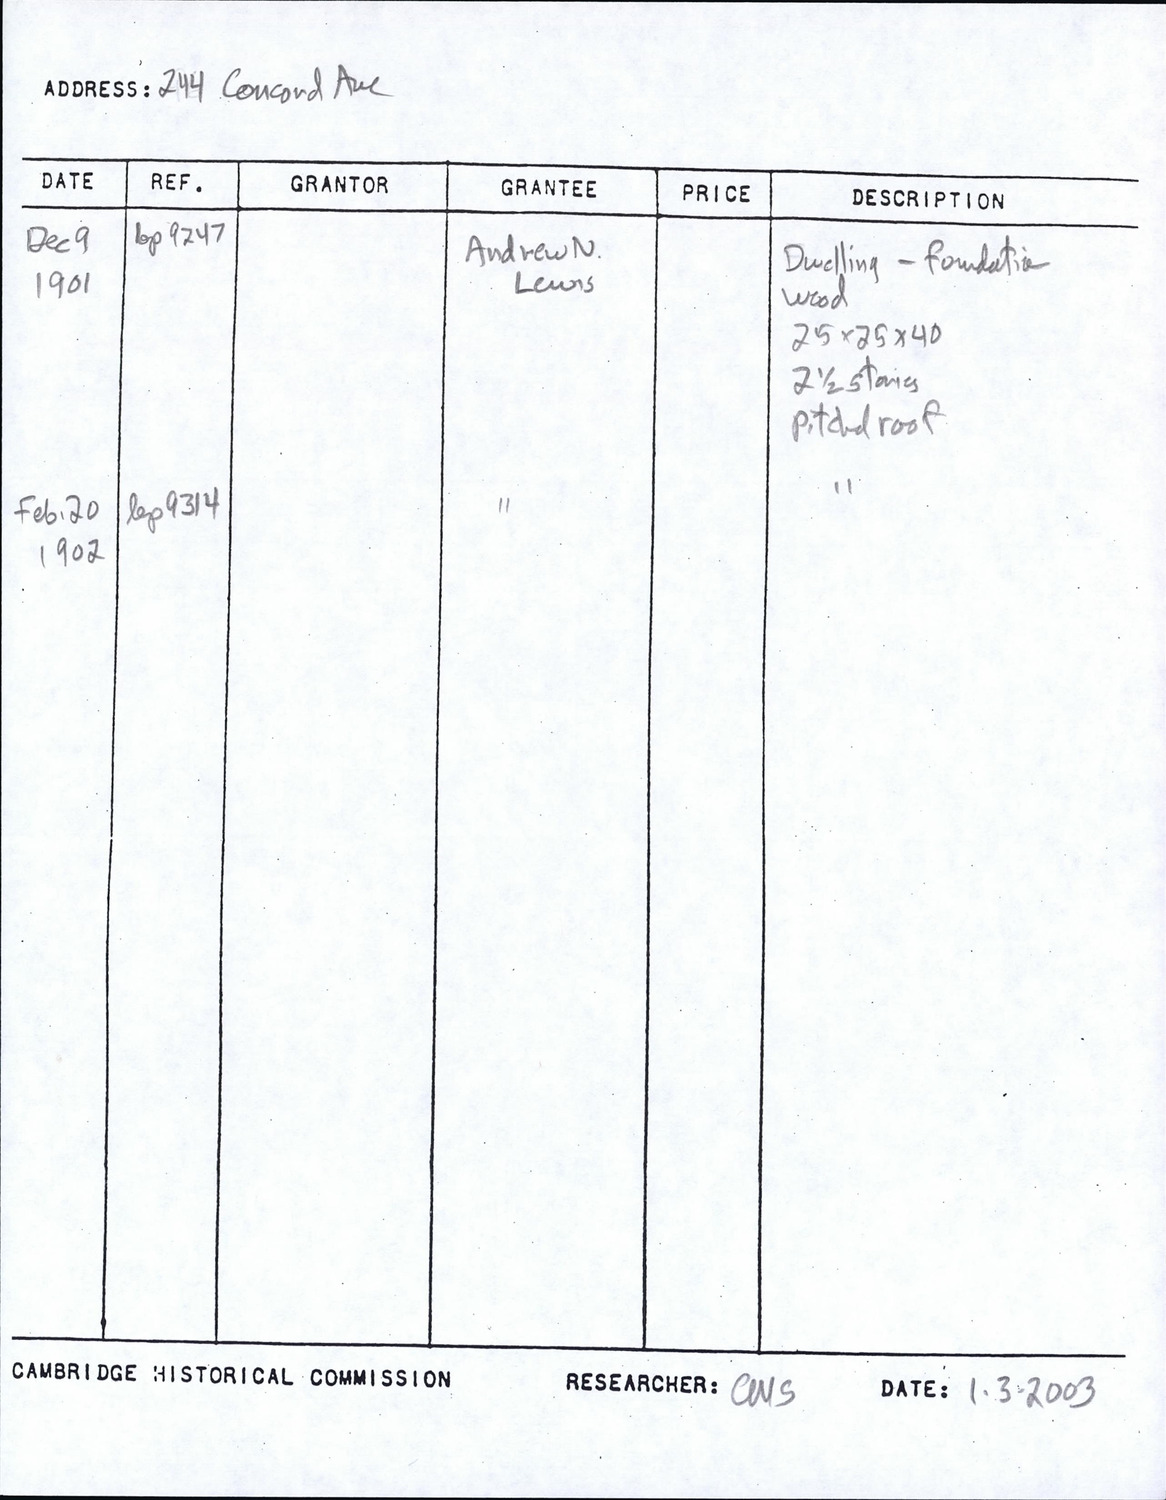 ADDRESS: 244 Concord Ave
DATE REF. GRANTOR GRANTEE PRICE DESCRIPTION
Dec 9 bp 9247 Andrew N. Dwelling - foundation
1901 Lewis wood
25 x 25 x 40
2 1/2 stories
pitched roof
Feb. 20 bp 9314 " "
1902
CAMBRIDGE HISTORICAL COMMISSION RESEARCHER: DATE: 1.3.2003